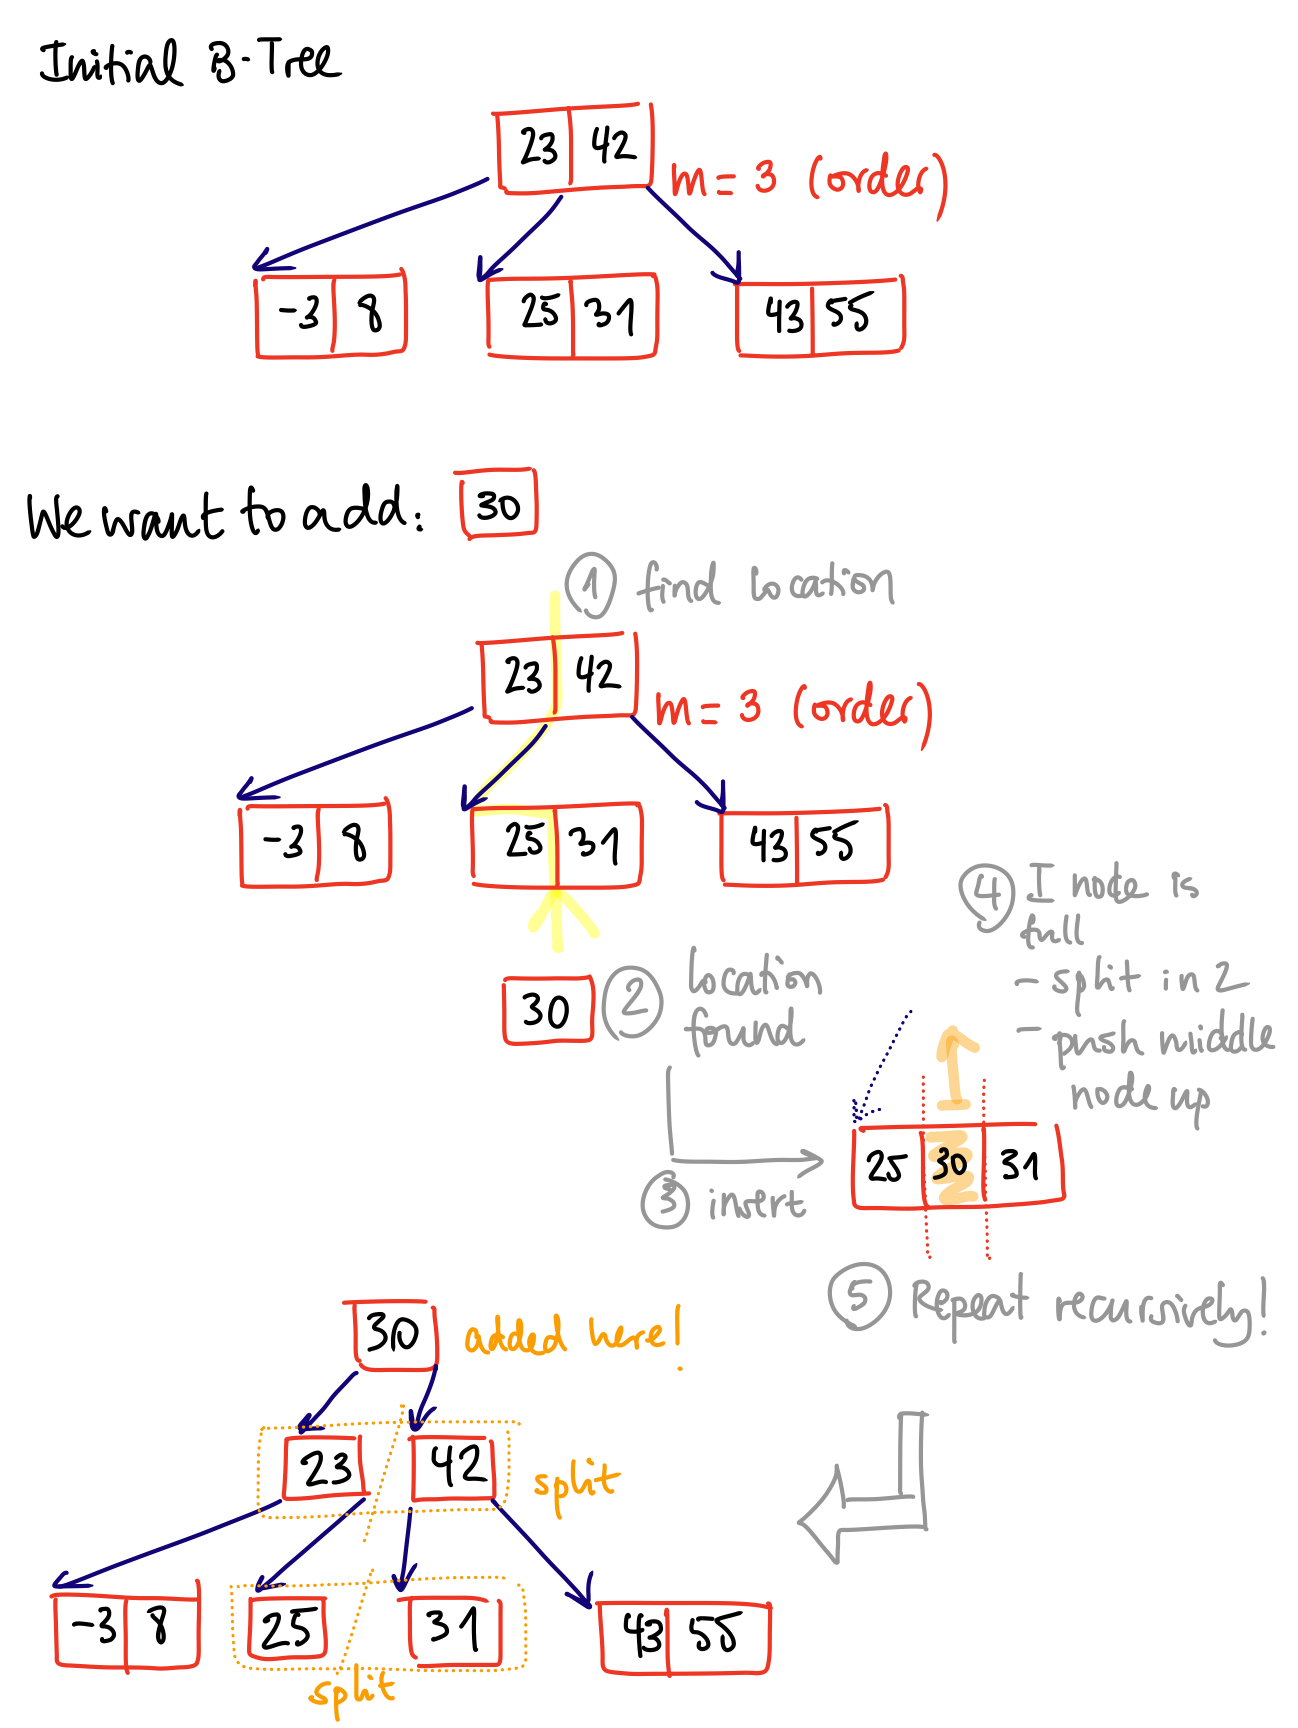 Initial B-Tree
23 42
m = 3 (order)
-3 8 25 31 43 55
We want to add: 30
1 find location
23 42
m = 3 (order)
-3 8 25 31 43 55
30 2 location
found
4 I node is
full
- split in 2
- push middle
node up
25 30 31
3 insert
5 Repeat recursively!
30 added here!
23 42 split
-3 8 25 31 43 55
split